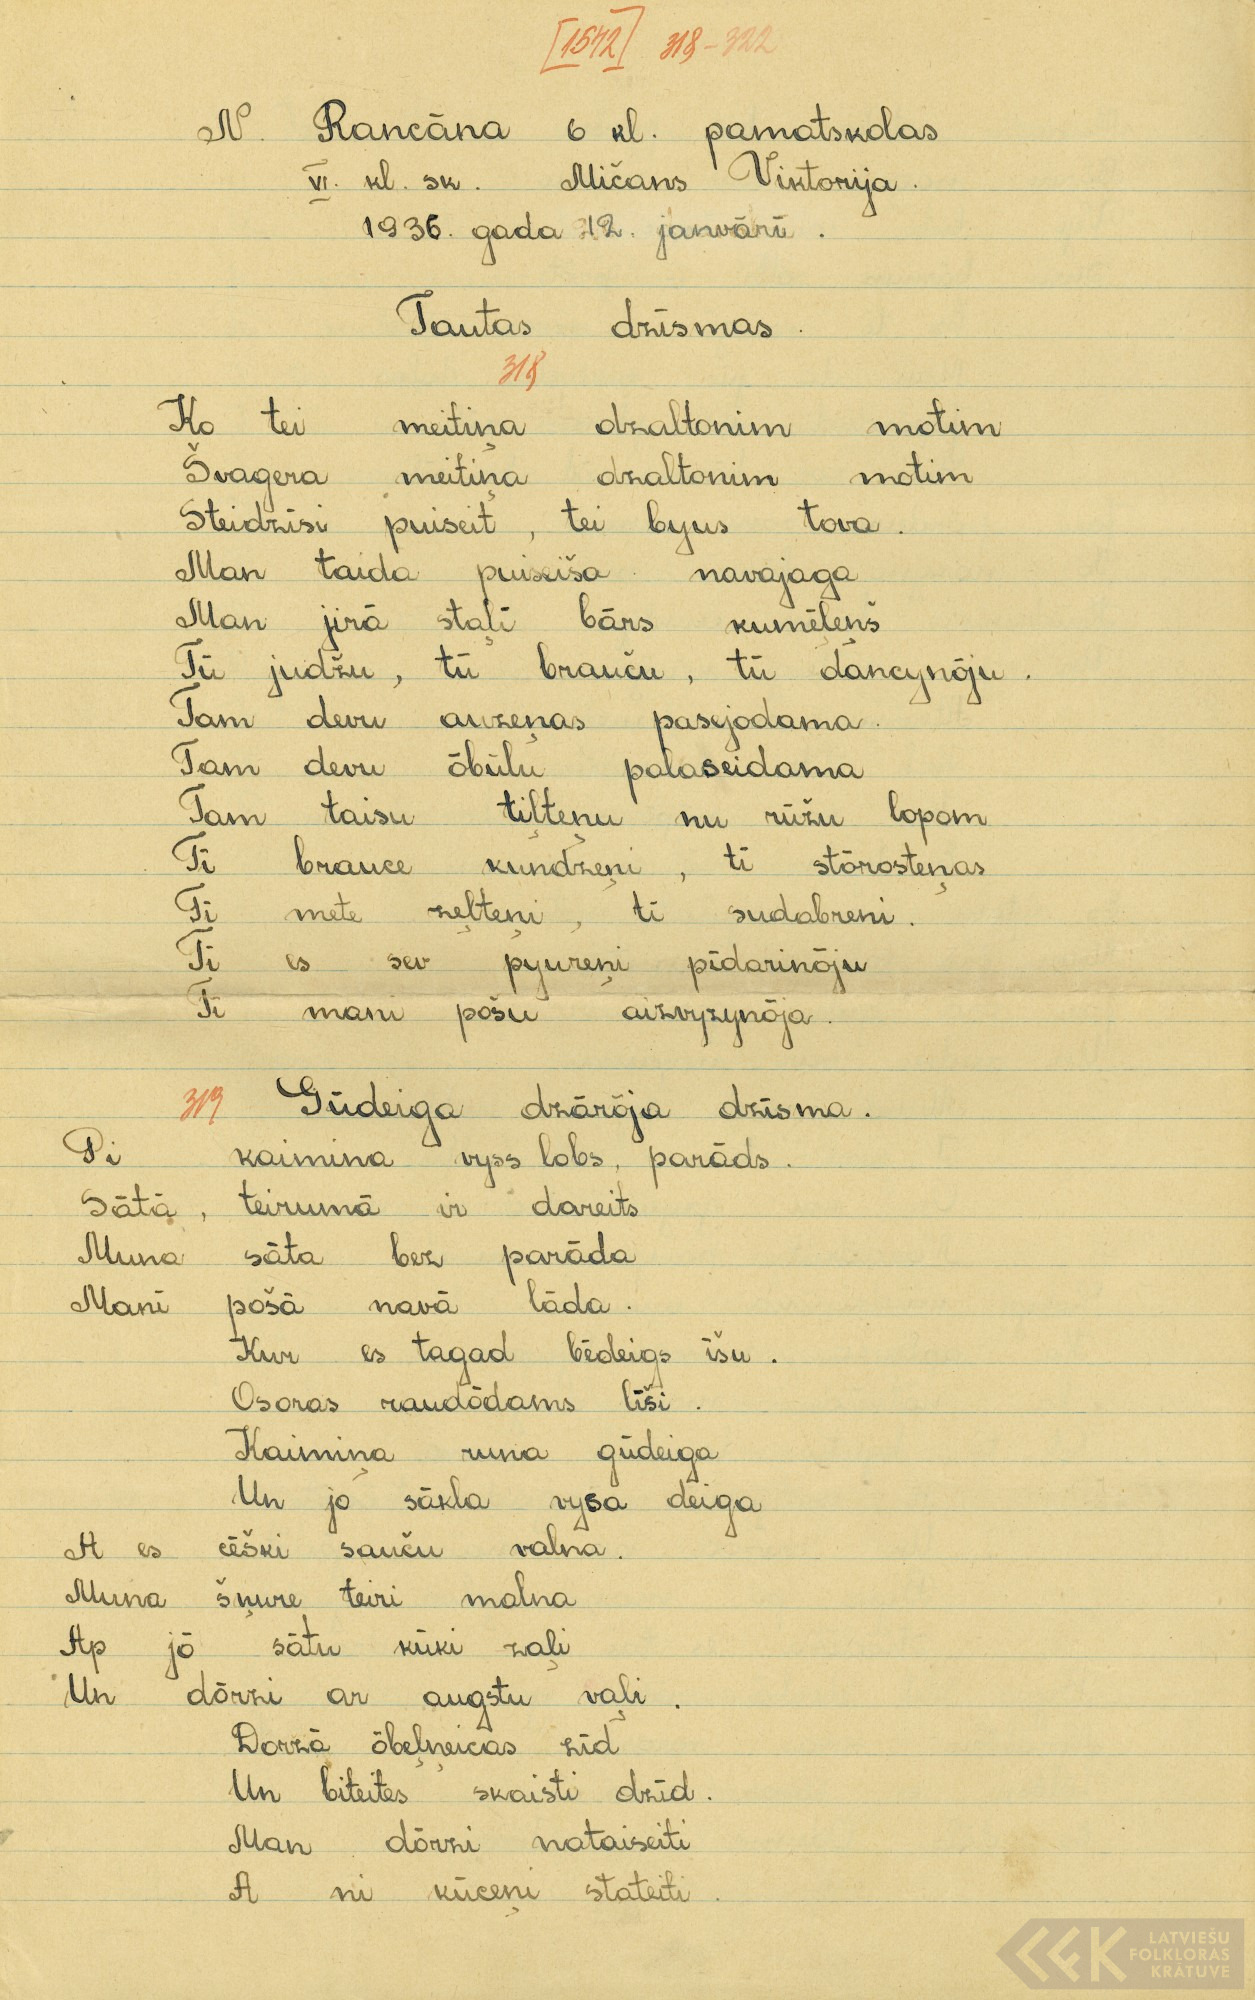 [1572] 318-322
N. Rancāna 6 kl. pamatskolas
VI. kl. sk. Mičans Viktorija.
1936. gada 12. janvārī.
Tautas dzīsmas.
318
Ko tei meitiņa dzaltonim motim
Švagera meitiņa dzaltonim motim
Steidzīsi puiseit, tei byus tova.
Man taida puiseiša navajaga
Man jirā staļī bārs kumēļeņš
Tū judžu, tū braucu, tū dancynōju.
Tam devu auzeņas pasejodama.
Tam devu ōbūlu palaseidama
Tam taisu tiļteņu nu rūžu lopom
Tī brauce kundzeņi, tī stōrosteņas
Tī mete zeļteņi, tī sudabreni.
Tī es sev pyureņi pīdarinōju
Tī mani pošu aizvyzynōja.
319 Gūdeiga dzārōja dzīsma.
Pi kaimiņa vyss lobs, parāds.
Sātā, teirumā ir dareits
Muna sāta bez parāda
Manī pošā navā lāda.
Kur es tagad bēdeigs īšu.
Osoras raudōdams līši.
Kaimiņa runa gūdeiga
Un jō sākla vysa deiga
A es cēški saucu valna.
Muna šņure teiri malna
Ap jō sātu kūki zaļi
Un dōrzi ar augstu vaļi.
Dorzā ōbeļņeicas zīd
Un biteites skaisti dzīd.
Man dōrzi nataiseiti
A ni kūceņi stateiti.
LATVIEŠU
FOLKLORAS
KRĀTUVE